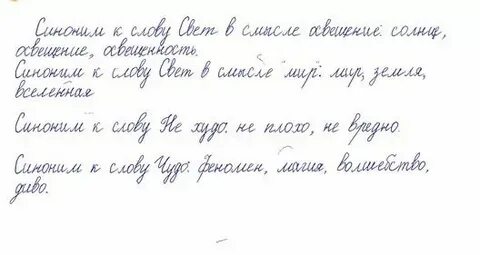 Синоним к слову Свет в смысле освещение: солнце,
освещение, освещенность.
Синоним к слову Свет в смысле "мир": мир, земля,
вселенная
Синоним к слову Не худо: не плохо, не вредно.
Синоним к слову Чудо: феномен, магия, волшебство,
диво.